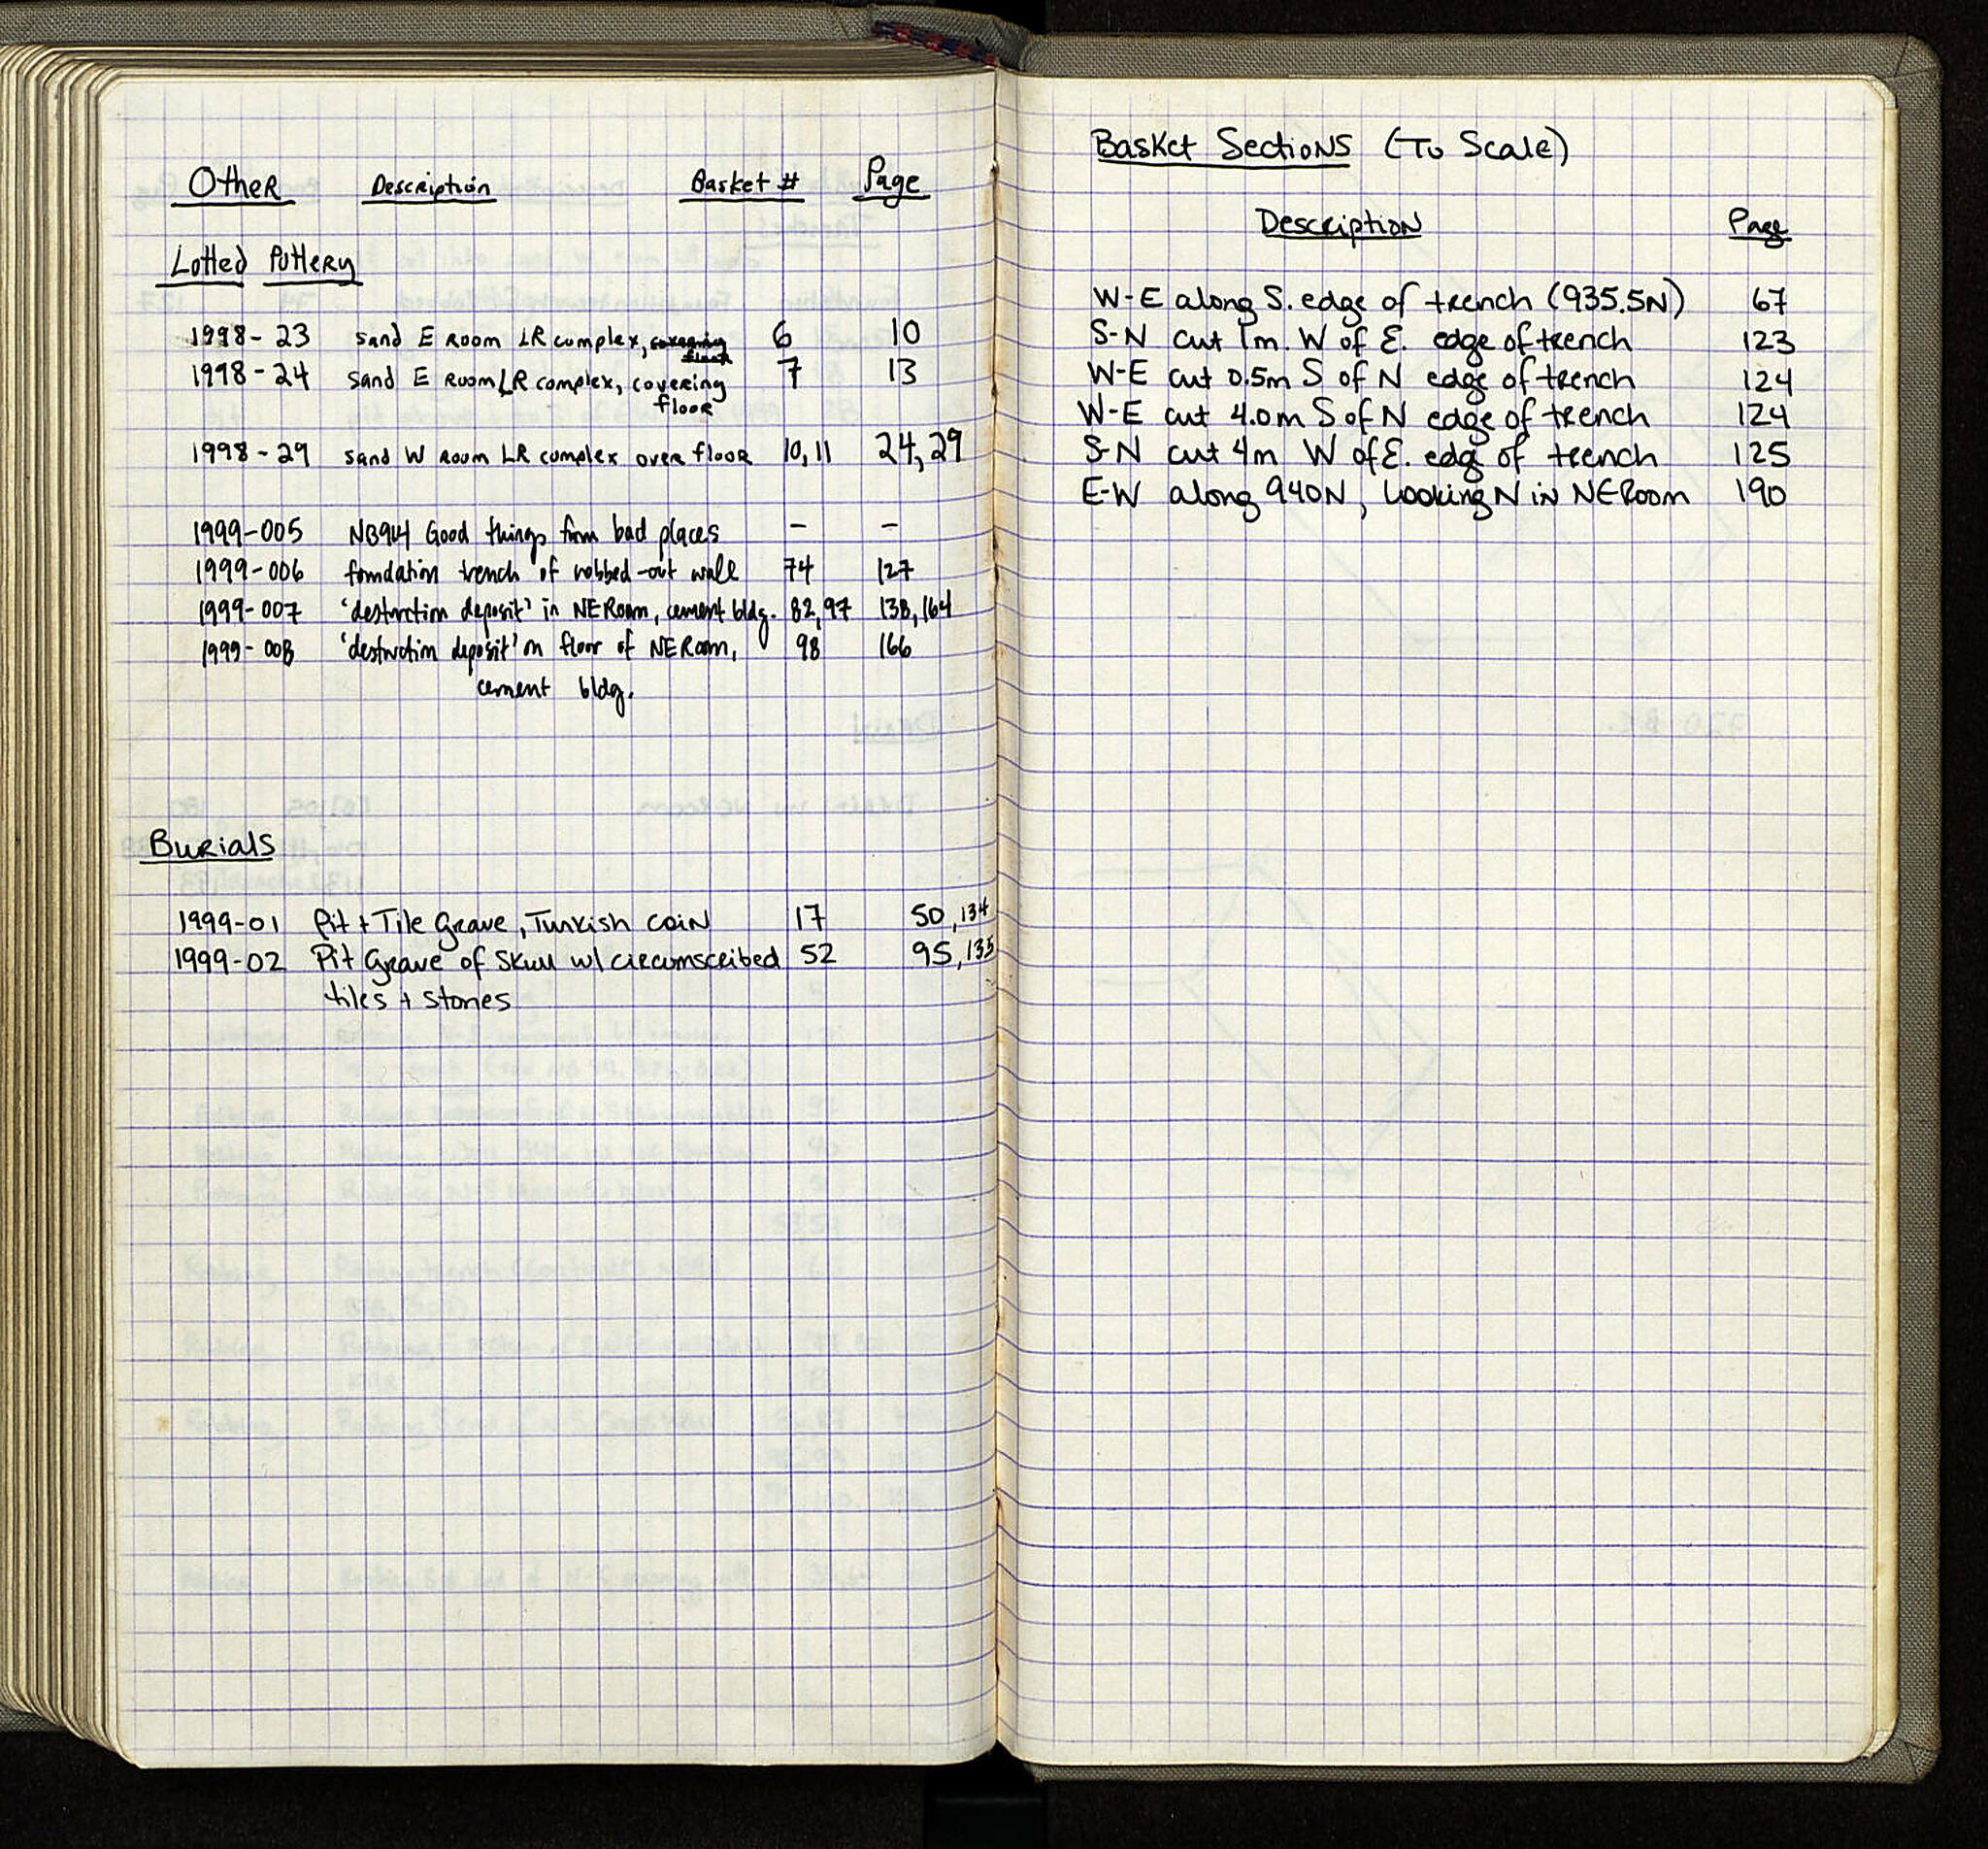 Other Description Basket # Page
Lotted Pottery
1998-23 sand E Room LR complex, covering 6 10
floor
1998-24 sand E Room LR complex, covering 7 13
floor
1998-29 sand W Room LR complex over floor 10,11 24,29
1999-005 NB914 Good things from bad places – –
1999-006 foundation trench of robbed-out wall 74 127
1999-007 'destruction deposit' in NE Room, cement bldg. 82,97 138,164
1999-008 'destruction deposit' on floor of NE Room, 98 166
cement bldg.
Burials
1999-01 Pit + Tile Grave, Turkish coin 17 50,134
1999-02 Pit Grave of Skull w/ circumscribed 52 95,135
tiles + stones
Basket Sections (To Scale)
Description Page
W-E along S. edge of trench (935.5N) 67
S-N cut 1m. W of E. edge of trench 123
W-E cut 0.5m S of N edge of trench 124
W-E cut 4.0m S of N edge of trench 124
S-N cut 4m W of E. edg of trench 125
E-W along 940N, looking N in NE Room 190